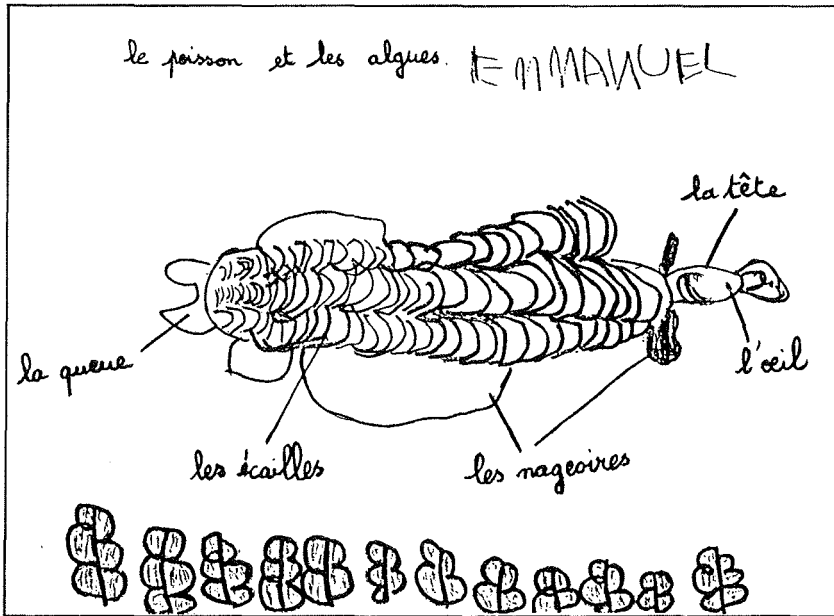 le poisson et les algues. EMMANUEL
la tête
la queue
l'œil
les écailles
les nageoires